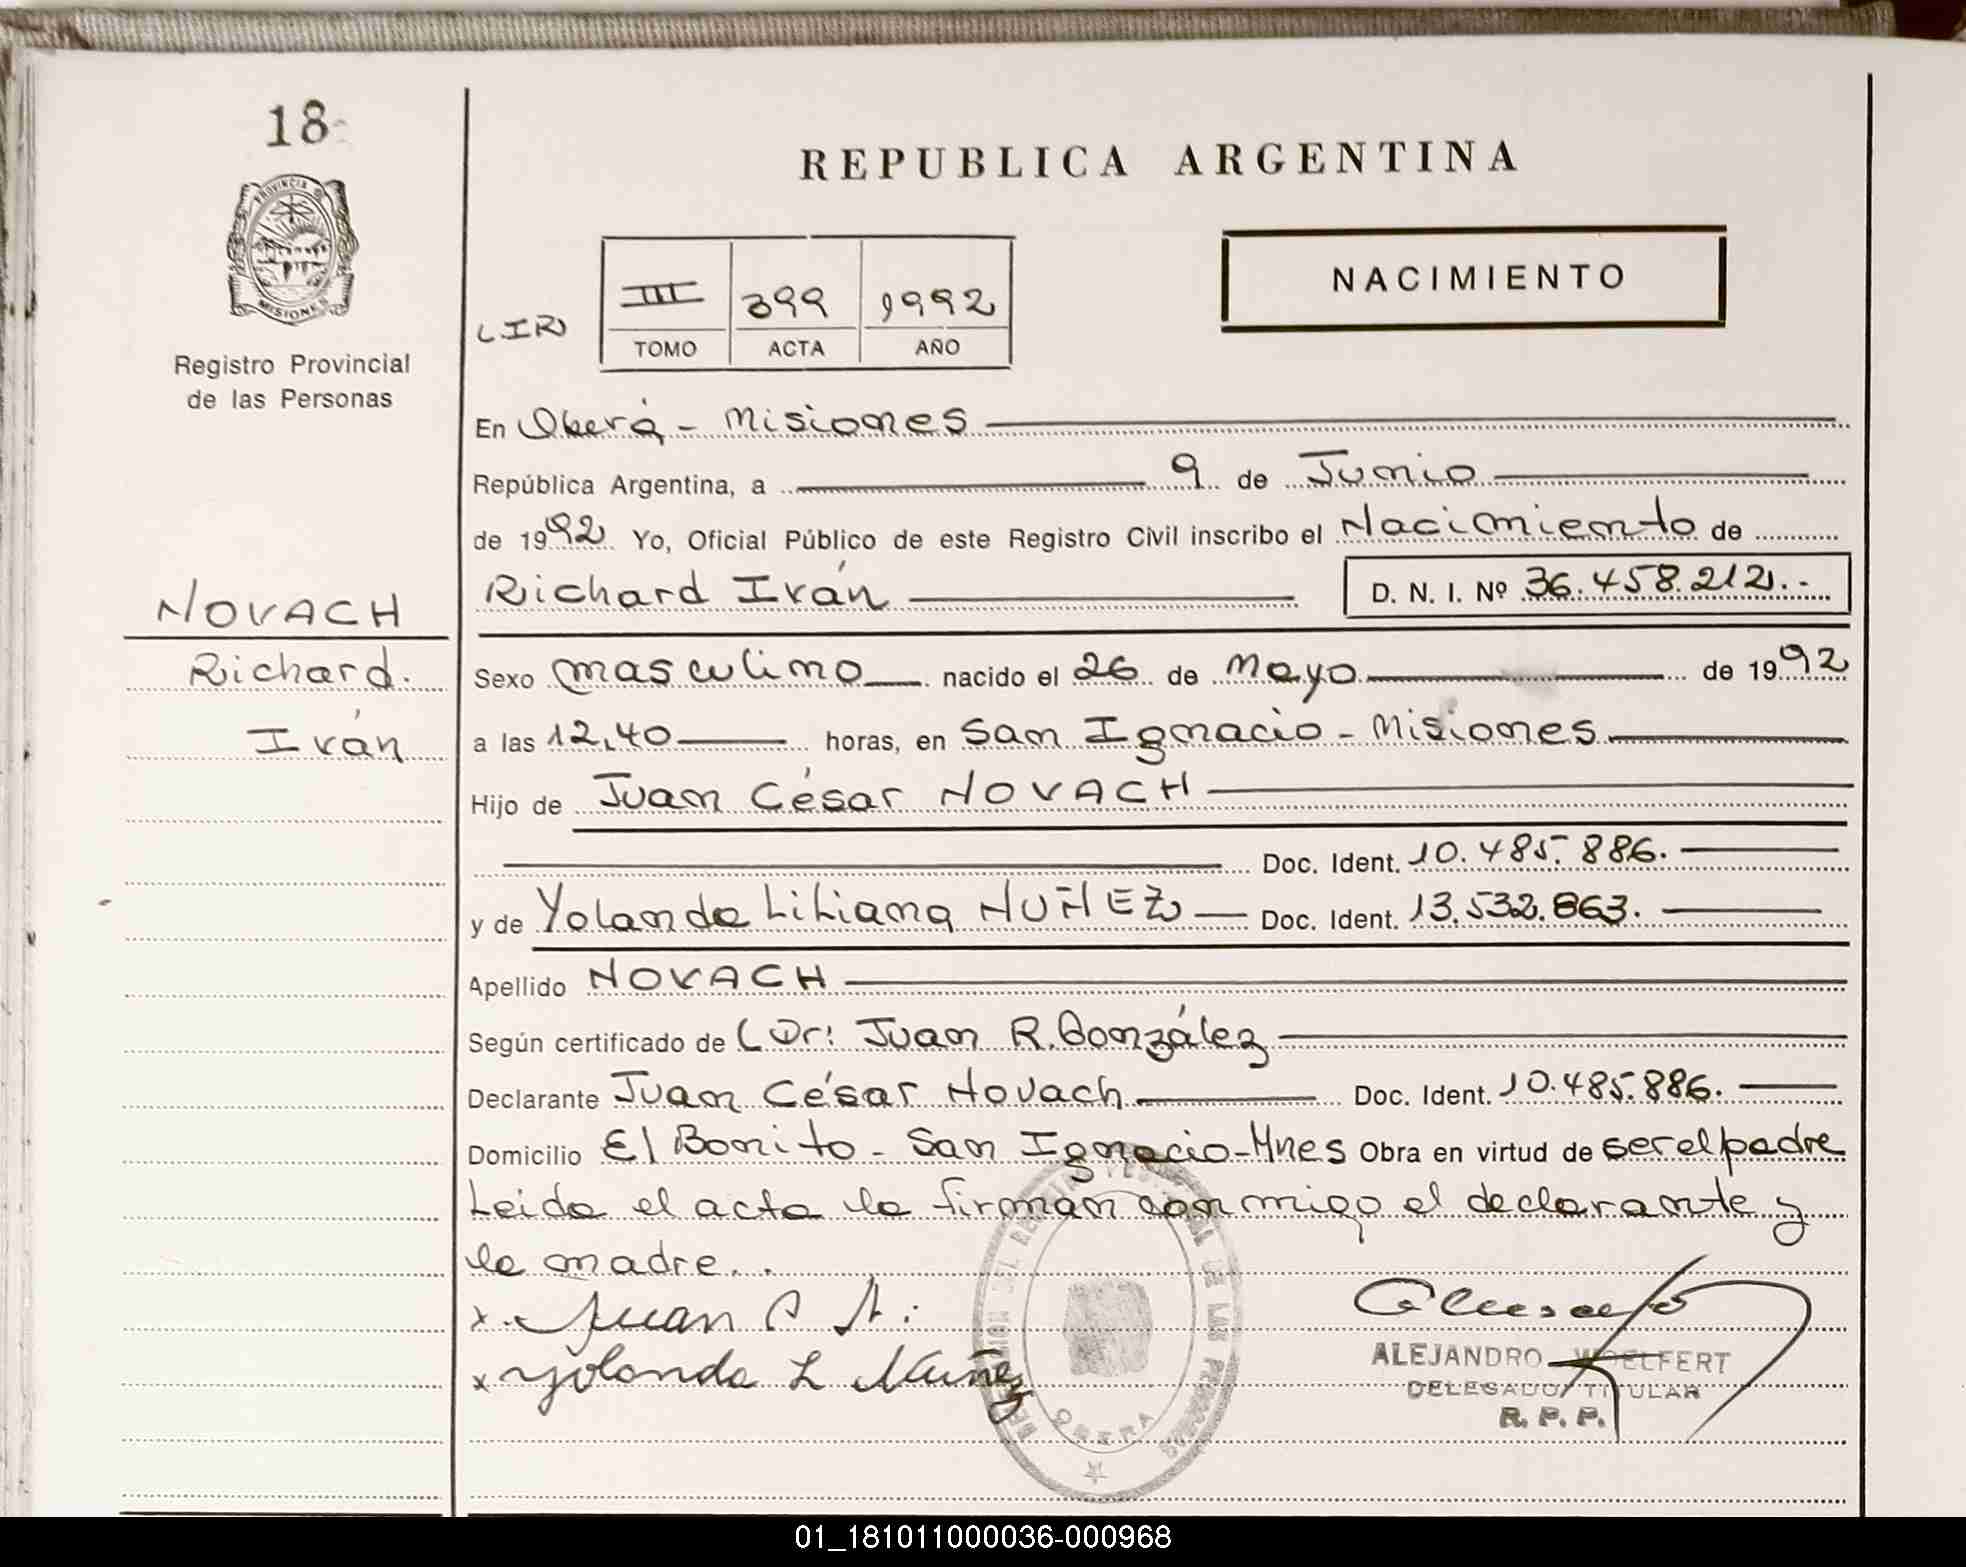 18
REPUBLICA ARGENTINA
PROVINCIA D
MISIONES
Registro Provincial
de las Personas
NACIMIENTO
LIR III 399 1992
TOMO ACTA AÑO
En Oberá - Misiones
República Argentina, a 9 de Junio
de 1992 Yo, Oficial Público de este Registro Civil inscribo el Nacimiento de
NOVACH
Richard Iván D. N. I. Nº 36.458.212.-
Richard.
Sexo masculino nacido el 26 de Mayo de 1992
Iván
a las 12,40 horas, en San Ignacio - Misiones
Hijo de Juan César NOVACH
Doc. Ident. 10.485.886.
y de Yolanda Liliana NUÑEZ Doc. Ident. 13.532.863.
Apellido NOVACH
Según certificado de Dr: Juan R. González
Declarante Juan César Novach Doc. Ident. 10.485.886.
Domicilio El Bonito - San Ignacio - Mnes Obra en virtud de ser el padre
Leida el acta la firman conmigo el declarante y
la madre..
x. Juan
x Yolanda L Nuñez
ALEJANDRO WOELFERT
DELEGADO TITULAR
R. P. P.
OBERA
01_181011000036-000968